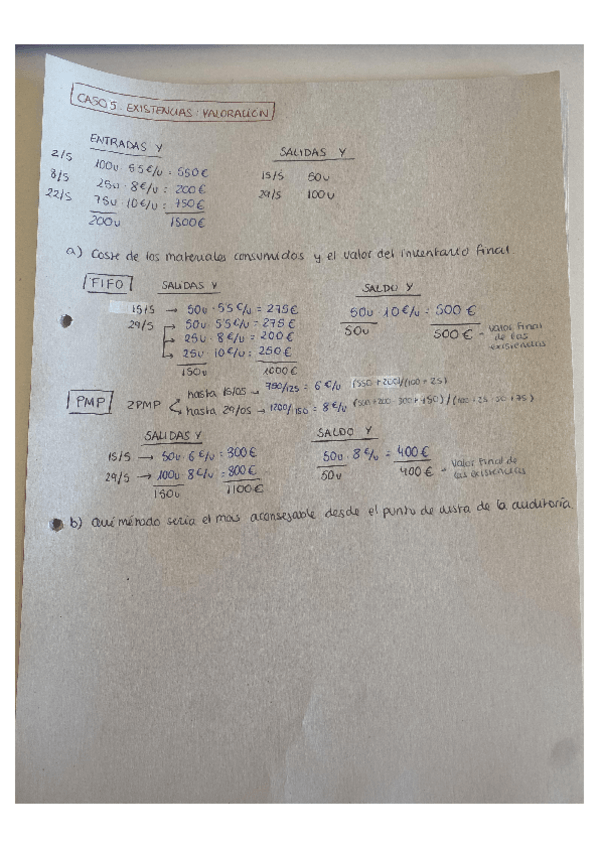 CASO 5. EXISTENCIAS: VALORACIÓN
ENTRADAS Y
2/5 100u · 5'5€/u = 550€
8/5 25u · 8€/u = 200€
22/5 75u · 10€/u = 750€
200u 1500€
SALIDAS Y
15/5 50u
29/5 100u
a) Coste de los materiales consumidos y el valor del inventario final.
FIFO SALIDAS Y
15/5 → 50u · 5'5€/u = 275€
29/5 → 50u · 5'5€/u = 275€
→ 25u · 8€/u = 200€
→ 25u · 10€/u = 250€
150u 1000€
SALDO Y
50u · 10€/u = 500€
50u 500€ - valor final
de las
existencias
PMP 2PMP
hasta 15/05 → 750/125 = 6€/u (550+200)/(100+25)
hasta 29/05 → 1200/150 = 8€/u (550+200-300+750)/(100+25-50+75)
SALIDAS Y
15/5 → 50u · 6€/u = 300€
29/5 → 100u · 8€/u = 800€
150u 1100€
SALDO Y
50u · 8€/u = 400€
50u 400€ - valor final de
las existencias
b) Qué método sería el más aconsejable desde el punto de vista de la auditoría.